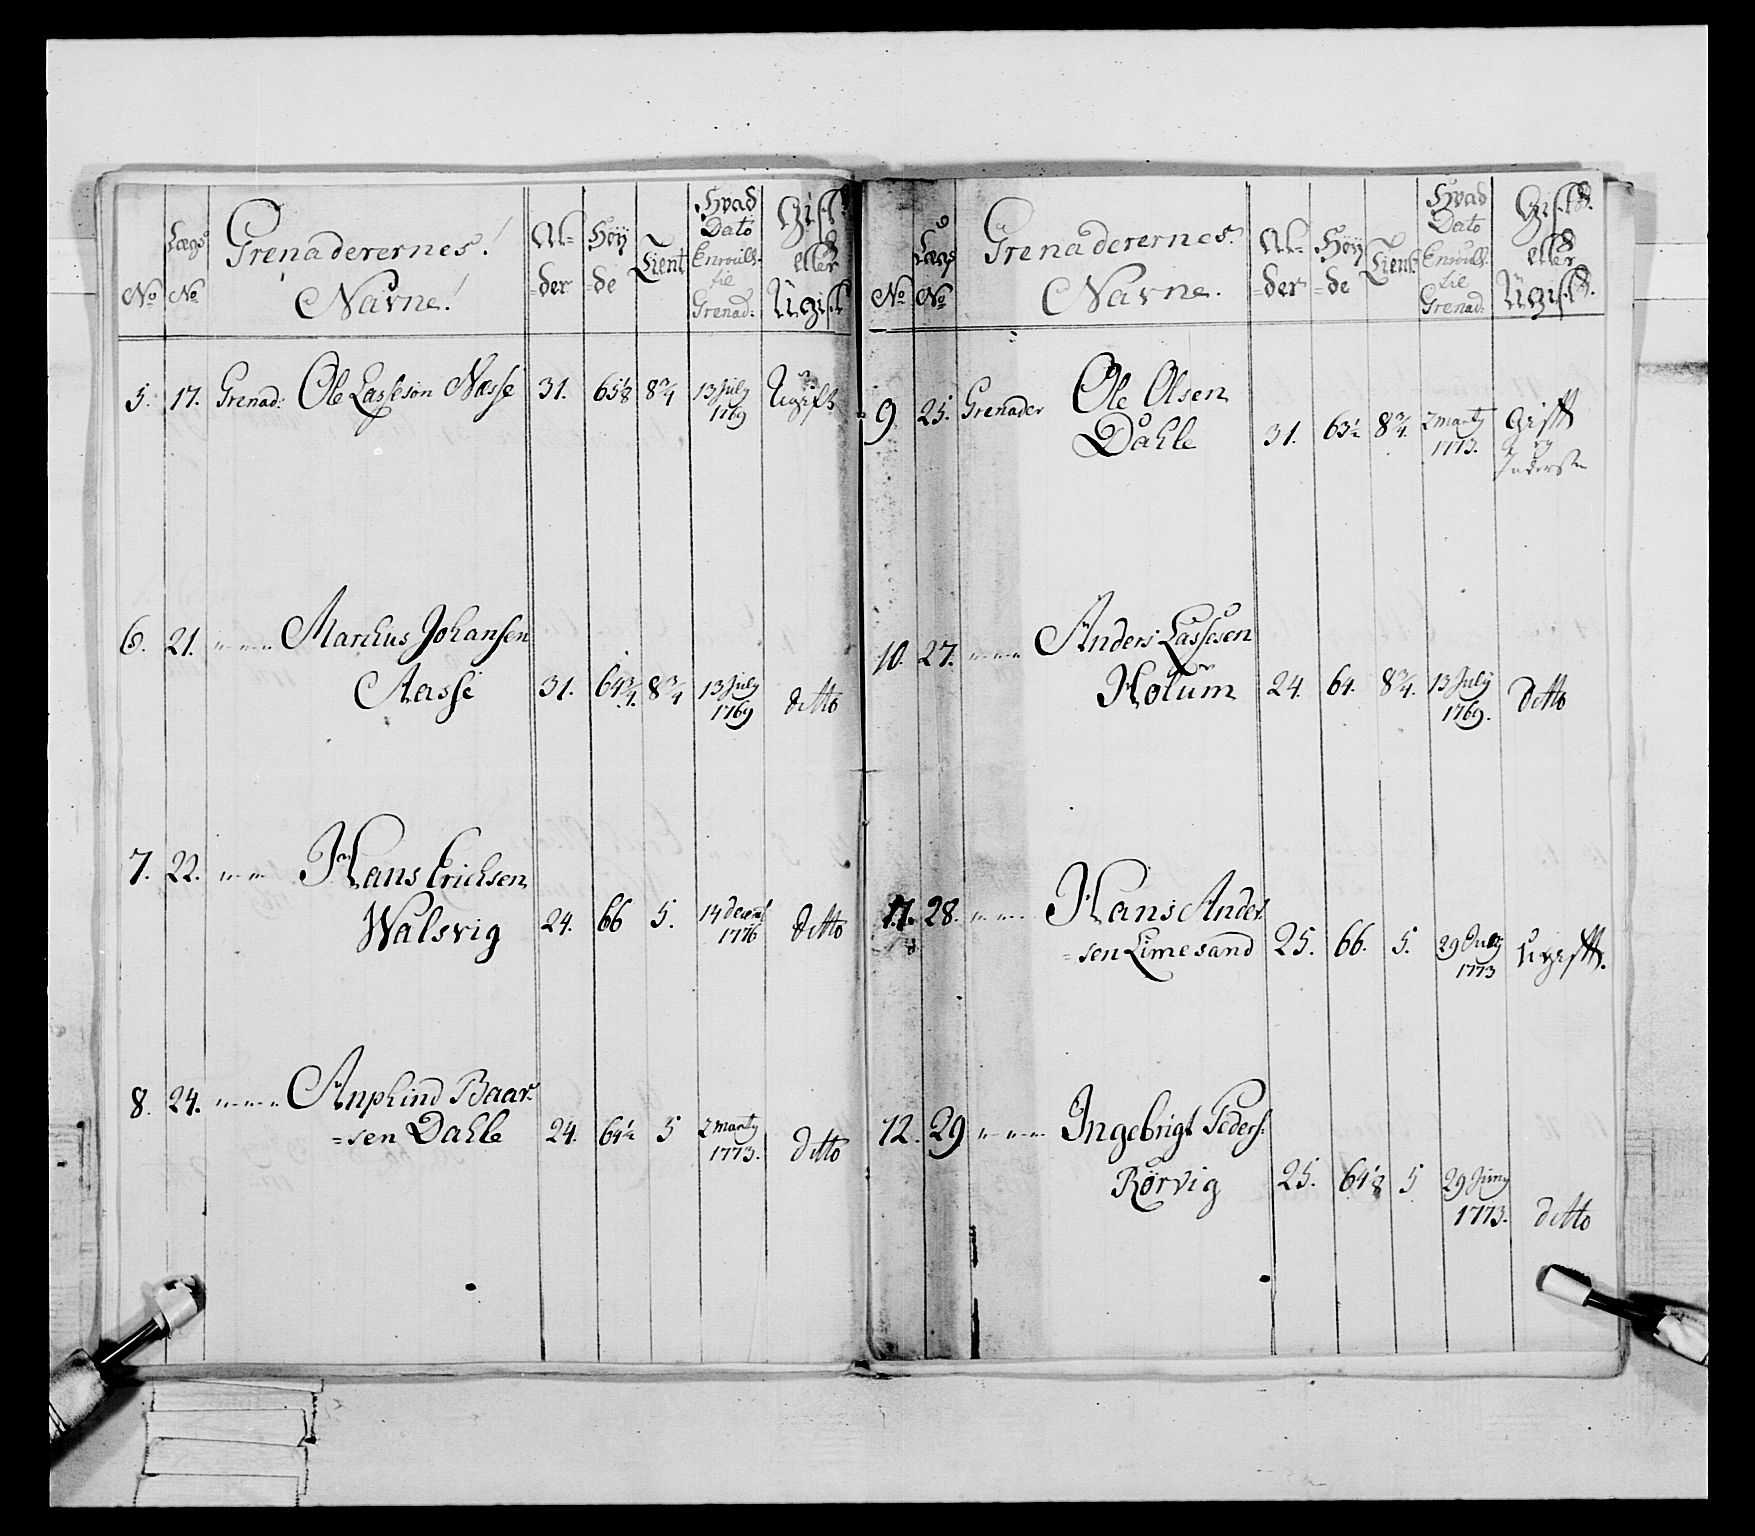 No
Lægs No
Grenaderernes! Navne!
Al=der
Höy=de
Tient
Hvad Dato Enroull. til Grenad:
Gift eller Ugift
5. 17. Grenad: Ole Lasseson Næsse 31. 65 1/8 8 3/4 13 July 1769 Ugift
6. 21. " " " Marchus Johansen
Aasse 31. 64 3/4. 8 3/4 13 July 1769 ditto
7. 22. " " Hans Erichsen
Walsvig 24. 66 5. 14 decemb 1776 ditto
8. 24. " " " Anphind Baar=
=sen Dahle 24. 64 1/2 5 2 marty 1773. ditto
No
Lægs No
Grenaderernes. Navne.
Al=der
Höy=de
Tient
Hvad Dato Enroull. til Grenad:
Gift eller Ugift.
9. 25. Grenader Ole Olsen
Dahle 31. 63 1/2 8 3/4. 2 marty 1773. Gift og Inderste
10. 27. " " " Anders Lassesen
Holum 24. 64. 8 3/4. 13 July 1769. ditto
11. 28. " " " Hans Ander
=sen Limesand 25. 66. 5. 29 July 1773 Ugift.
12. 29 " " " Ingebrigt Peders:
Rörvig 25. 64 1/8 5 29 Juny 1773. ditto